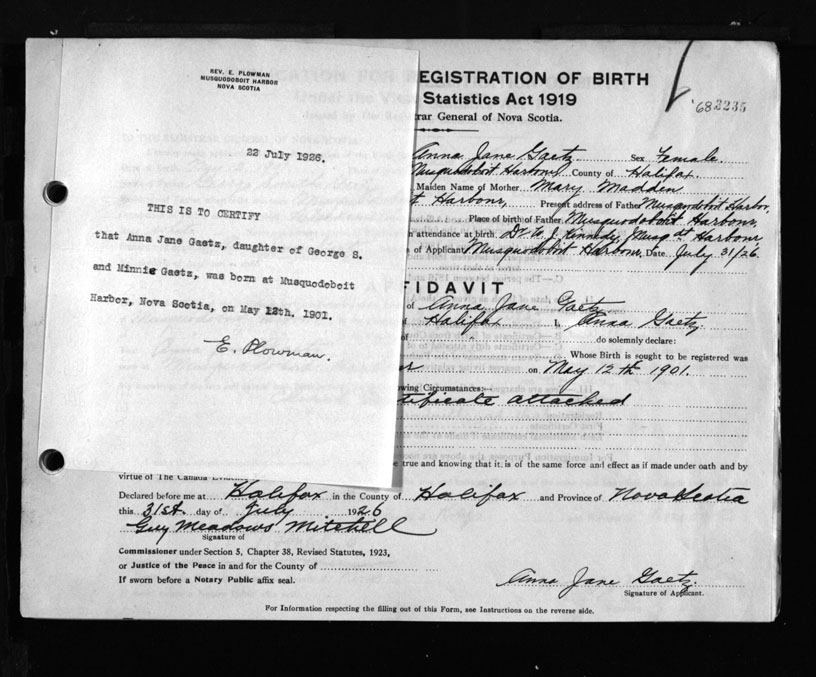 REV. E. PLOWMAN
MUSQUODOBOIT HARBOR
NOVA SCOTIA
22 July 1926.
THIS IS TO CERTIFY
that Anna Jane Gaetz, daughter of George S.
and Minnie Gaetz, was born at Musquodoboit
Harbor, Nova Scotia, on May 12th. 1901.
E. Plowman.
EGISTRATION OF BIRTH
Statistics Act 1919
rar General of Nova Scotia.
'68 3235
Anna Jane Gaetz Sex Female.
Musquodoboit Harbour County of Halifax.
Maiden Name of Mother Mary Madden
t Harbour, Present address of Father Musquodoboit Harbor,
Place of birth of Father Musquodoboit Harbour,
n attendance at birth. Dr. W. J. Kennedy, Musq dt Harbour
s of Applicant Musquodoboit Harbour, Date July 31/26.
FIDAVIT
of Anna Jane Gaetz
Halifax I, Anna Gaetz,
of do solemnly declare:
Whose Birth is sought to be registered was
on May 12th 1901.
owing Circumstances:—
tificate attached
e true and knowing that it is of the same force and effect as if made under oath and by
virtue of The Canada
Declared before me at Halifax in the County of Halifax and Province of Nova Scotia
this 31st. day of July 1926
Guy Meadows Mitchell
Signature of
Commissioner under Section 5, Chapter 38, Revised Statutes, 1923,
or Justice of the Peace in and for the County of
If sworn before a Notary Public affix seal.
Anna Jane Gaetz
Signature of Applicant.
For Information respecting the filling out of this Form, see Instructions on the reverse side.